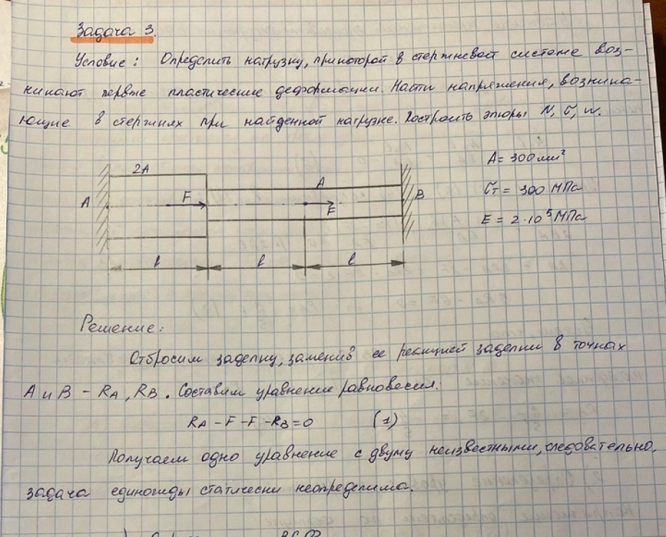 Задача 3.
Условие: Определить нагрузку, при которой в стержневой системе воз-
никают первые пластические деформации. Найти напряжения, возника-
ющие в стержнях при найденной нагрузке. Построить эпюры N, σ, w.
A = 300 мм²
σт = 300 МПа
E = 2·10⁵ МПа
2A
A
A
F
F
B
l
l
l
Решение:
Отбросим заделку, заменив ее реакцией заделки в точках
A и B - RA, RB. Составим уравнение равновесия.
RA - F - F - RB = 0 (1)
Получаем одно уравнение с двумя неизвестными, следовательно,
задача единожды статически неопределима.